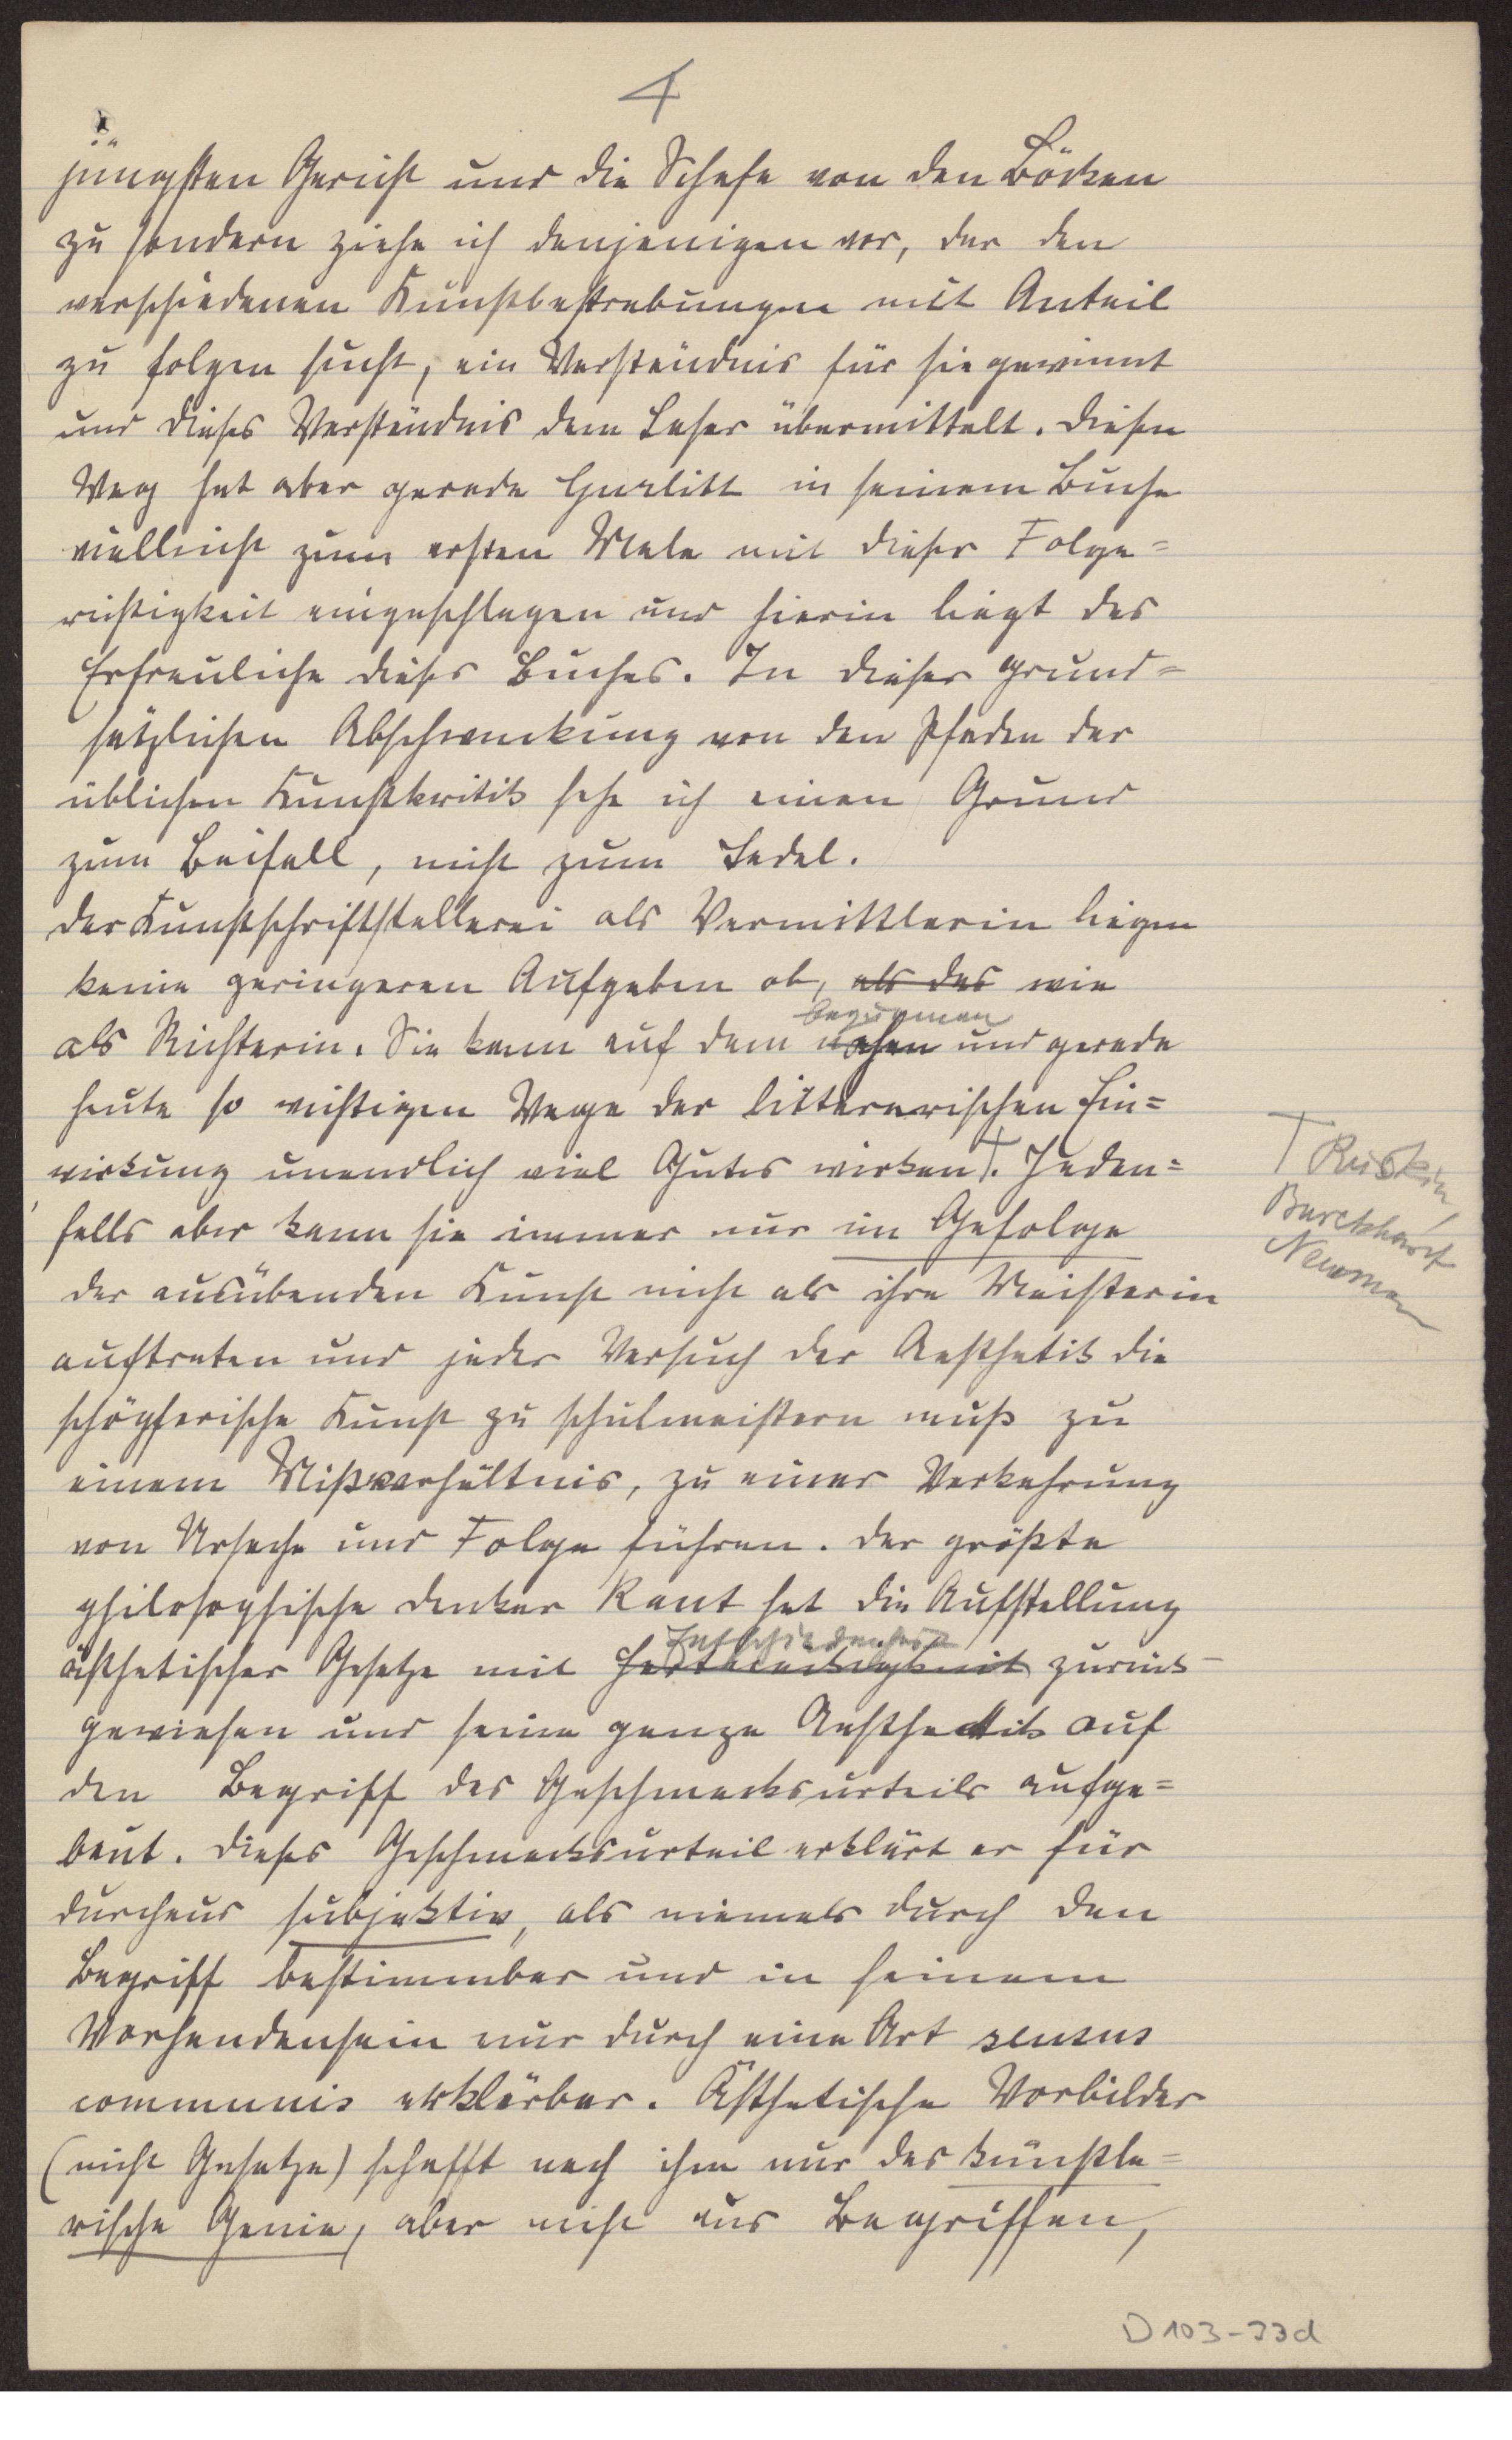 4
jüngsten Gericht und die Schafe von den Böcken
zu sondern ziehe ich denjenigen vor, der den
verschiedenen Kunstbestrebungen mit Anteil
zu folgen sucht, ein Verständnis für sie gewinnt
und dieses Verständnis dem Leser übermittelt. Diesen
Weg hat aber gerade Gurlitt in seinem Buche
vielleicht zum ersten Male mit dieser Folge=
richtigkeit eingeschlagen und hierin liegt das
Erfreuliche dieses Buches. In dieser grund=
sätzlichen Abschwenkung von den Pfaden der
üblichen Kunstkritik sehe ich einen Grund
zum Beifall, nicht zum Tadel.
Der Kunstschriftstellerei als Vermittlerin liegen
keine geringeren Aufgaben ob, als das wie
bequemen
als Richterin. Sie kann auf dem nahen und gerade
heute so wichtigen Wege der litterarischen Ein=
wirkung unendlich viel Gutes wirken †. Jeden=
† Ruskin
Burckhardt
Neuman
falls aber kann sie immer nur im Gefolge
der ausübenden Kunst nicht als ihre Meisterin
auftreten und jeder Versuch der Aesthetik die
schöpferische Kunst zu schulmeistern muß zu
einem Mißverhältnis, zu einer Verkehrung
von Ursache und Folge führen. Der größte
philosophische Denker Kant hat die Aufstellung
Entschiedenheit
ästhetischer Gesetze mit Hartnäckigkeit zurück-
gewiesen und seine ganze Aesthetik auf
den Begriff des Geschmacksurteils aufge=
baut. Dieses Geschmacksurteil erklärt er für
durchaus subjektiv, als niemals durch den
Begriff bestimmbar und in seinem
Vorhandensein nur durch eine Art sensus
communis erklärbar. Ästhetische Vorbilder
(nicht Gesetze) schafft nach ihm nur das künstle=
rische Genie, aber nicht aus Begriffen,
D 103-33d